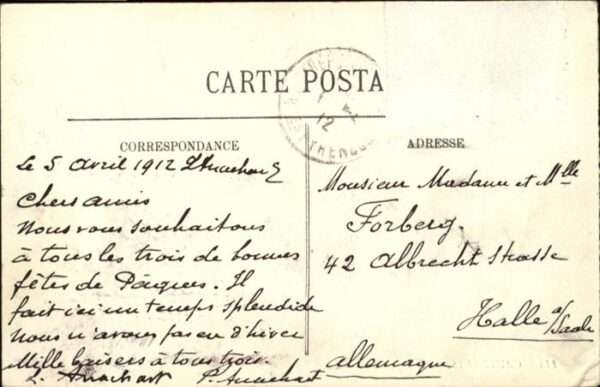 CARTE POSTA
12
CORRESPONDANCE
Le 5 avril 1912
Chers amis
Nous vous souhaitons
à tous les trois de bonnes
fêtes de Pâques. Il
fait ici un temps splendide
nous n'avons pas eu d'hiver
Mille baisers à tous trois.
ADRESSE
Monsieur Madame et Mlle
Forberg.
42 Albrecht Strasse
Halle a/Saale
Allemagne